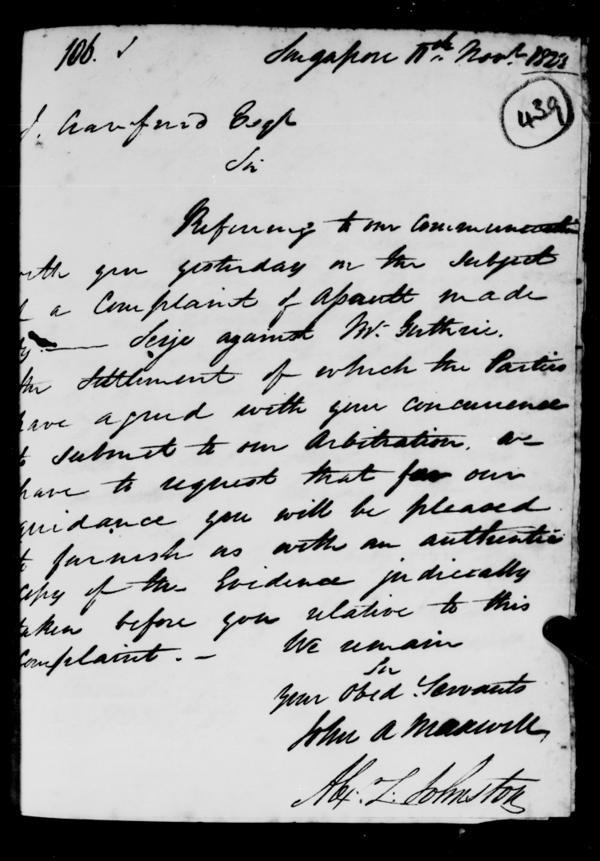 106.
Singapore 11th. Novr. 1823
439
J. Crawfurd Esqr
Sir
Referring to our Communication
with you yesterday on the Subject
of a Complaint of Assault made
by against Mr. Guthrie.
the Settlement of which the Parties
have agreed with your Concurrence
to submit to our Arbitration, we
have to request that for our
guidance you will be pleased
to furnish us with an authentic
Copy of the Evidence judicially
taken before you relative to this
Complaint. —
We remain
Sir
Your Obed. Servants
John A Maxwell
Alex. L. Johnston